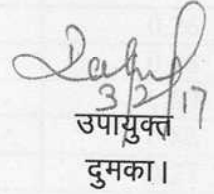 3/2/17
उपायुक्त
दुमका।